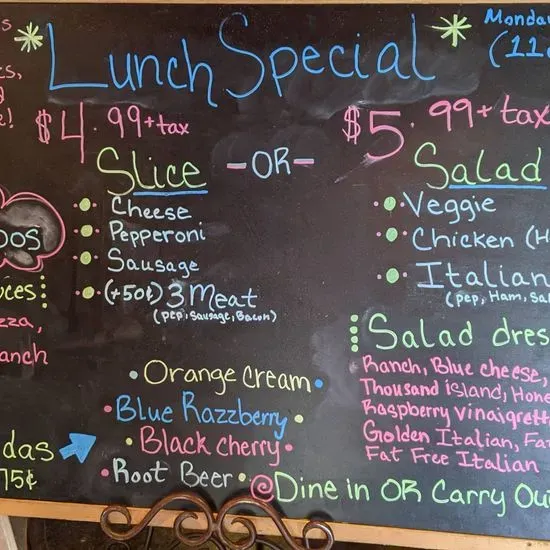 Lunch Special
Monda
(11
$4.99+tax
-OR-
$5.99+tax
Slice
Cheese
Pepperoni
Sausage
(+50¢) 3 Meat
(pep, Sausage, Bacon)
Salad
Veggie
Chicken (H
Italian
(pep, Ham, Sal
Salad dres
Ranch, Blue cheese,
Thousand island, Hone
Raspberry vinaigrett
Golden Italian, Fat
Fat Free Italian
das
75¢
Orange Cream
Blue Razzberry
Black Cherry
Root Beer
Dine in OR Carry Ou